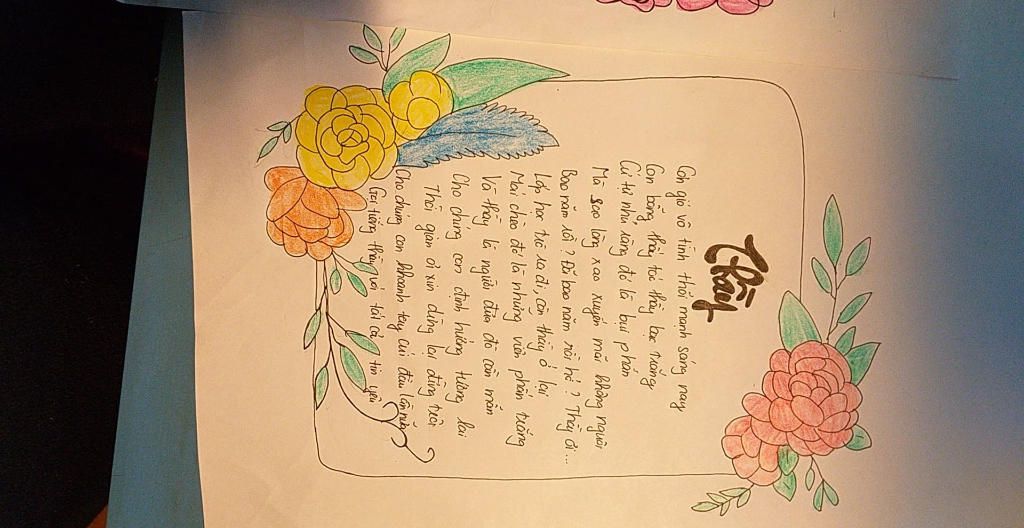 Thầy
Cơn gió vô tình thổi mạnh sáng nay
Con bỗng thấy tóc thầy bạc trắng
Cứ tự nhủ rằng đó là bụi phấn
Mà sao lòng xao xuyến mãi không nguôi
Bao năm rồi? Đã bao năm rồi hở? Thầy ơi...
Lớp học trò ra đi, còn thầy ở lại
Mái chèo đó là những viên phấn trắng
Và thầy là người đưa đò cần mẫn
Cho chúng con định hướng tương lai
Thời gian ơi xin dừng lại đừng trôi
Cho chúng con khoanh tay cúi đầu lần nữa
Gọi tiếng thầy với tất cả tin yêu